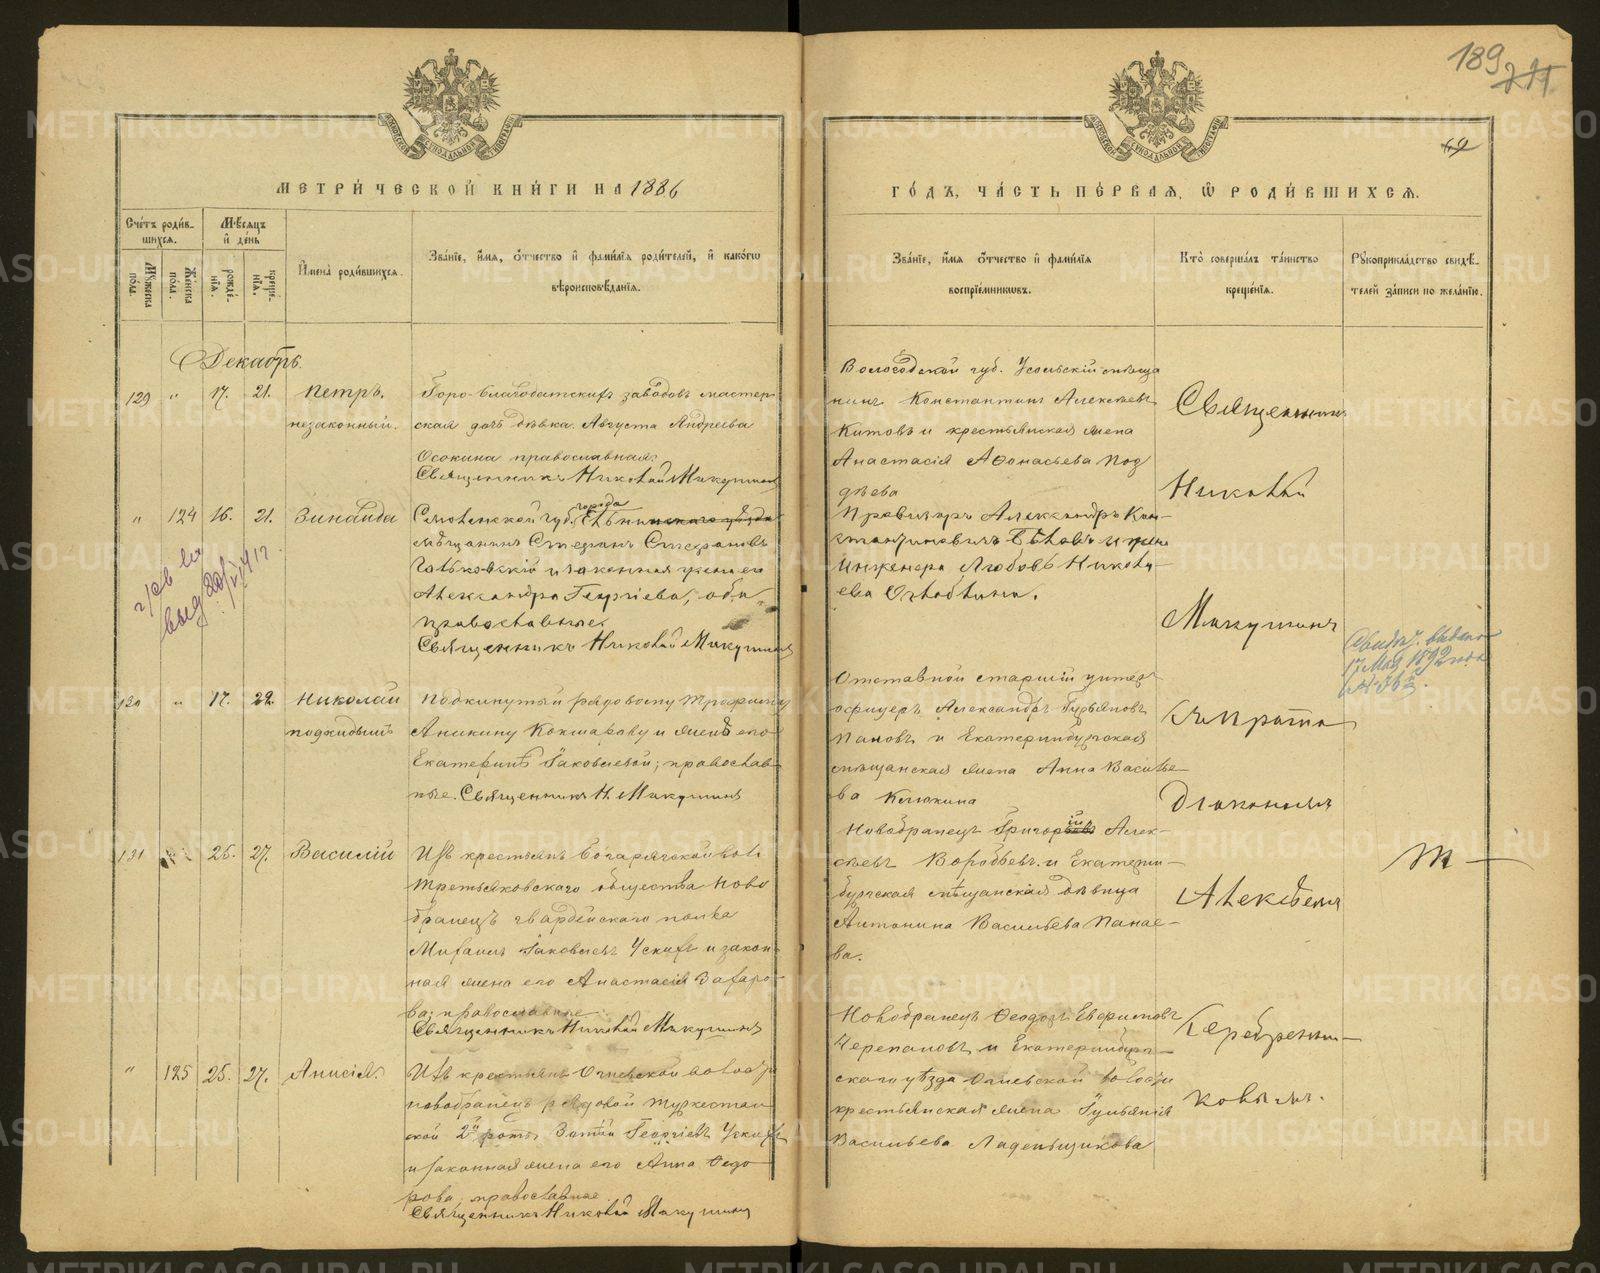 189
МЕТРИ́ЧЕСКОЙ КНИ́ГИ НА 1886
ГО́ДЪ, ЧА́СТЬ ПЕ́РВАЯ, Ѽ РОДИ́ВШИХСЯ.
Сче́тъ роди́в-
шихся.
Мꙋ́жеска по́ла.
Же́нска по́ла.
Мѣ́сяцъ
и҆ де́нь
рожде́-
нїя.
креще́-
нїя.
И҆мена̀ роди́вшихся.
Зва́нїе, и҆́мя, ѻ҆́тчество и҆ фами́лїя роди́телей, и҆ како́гѡ
вѣроисповѣ́данїя.
Зва́нїе, и҆́мя ѻ҆́тчество и҆ фами́лїя
воспрїе́мникѡвъ.
Кто̀ соверша́лъ та́инство
креще́нїя.
Рꙋкоприкла́дство свидѣ́-
телей за́писи по жела́нїю.
Декабрь.
129 " 17. 21. Петръ.
незаконный.
Горо-благодатскихъ заводовъ мастер-
ская дочь дѣвка Августа Андреева
Осокина православная.
Священникъ Николай Макушинъ
Вологодской губ. Усольскій мѣща
нинъ Константинъ Алексѣевъ
Китовъ и крестьянская жена
Анастасія Аѳонасьева Под
дѣева
" 124 16. 21. Зинаида
Смоленской губ. города
мѣщанинъ Стефанъ Стефановъ
и законная жена его
Александра Георгіева, оба
православные.
Священникъ Николай Макушинъ
Провизоръ Александръ Кон-
стантиновичъ и жена
Инженера Любовь Никола-
ева
130 " 17. 22. Николай
подкидышъ
Подкинутый рядовому Трофиму
Аникину Кокшарову и женѣ его
Екатеринѣ Іаковлевой; православ-
ные. Священникъ Н. Макушинъ
Отставной старшій унтеръ
офицеръ Александръ Гурьяновъ
Пановъ и Екатеринбургская
мѣщанская жена Анна Василье-
ва Клюкина
131 25. 27. Василій
Изъ крестьянъ вол.
Третьяковскаго общества ново
бранецъ гвардейскаго полка
Михаилъ Іаковлевъ Ускихъ и закон-
ная жена его Анастасія Захаро-
ва; православные.
Священникъ Николай Макушинъ
Новобранецъ Григорій Алек-
сѣевъ Воробьевъ и Екатерин-
бургская мѣщанская дѣвица
Антонина Васильева Панае-
ва.
" 125 25. 27. Анисія.
Изъ крестьянъ волости
новобранецъ рядовой Туркестан
ской 2й роты Георгіевъ Ускихъ
и законная жена его Анна Ѳедо
рова, православные.
Священникъ Николай Макушинъ
Новобранецъ Ѳеодоръ Евфимовъ
Черепановъ и Екатеринбург-
скаго уѣзда волости
крестьянская жена Іульянія
Васильева Ладейщикова
Священникъ
Николай
Макушинъ
съ Діакономъ
Алексѣемъ
Серебренни-
ковымъ.
Свидѣт. выдано
17 Мая 1892 года